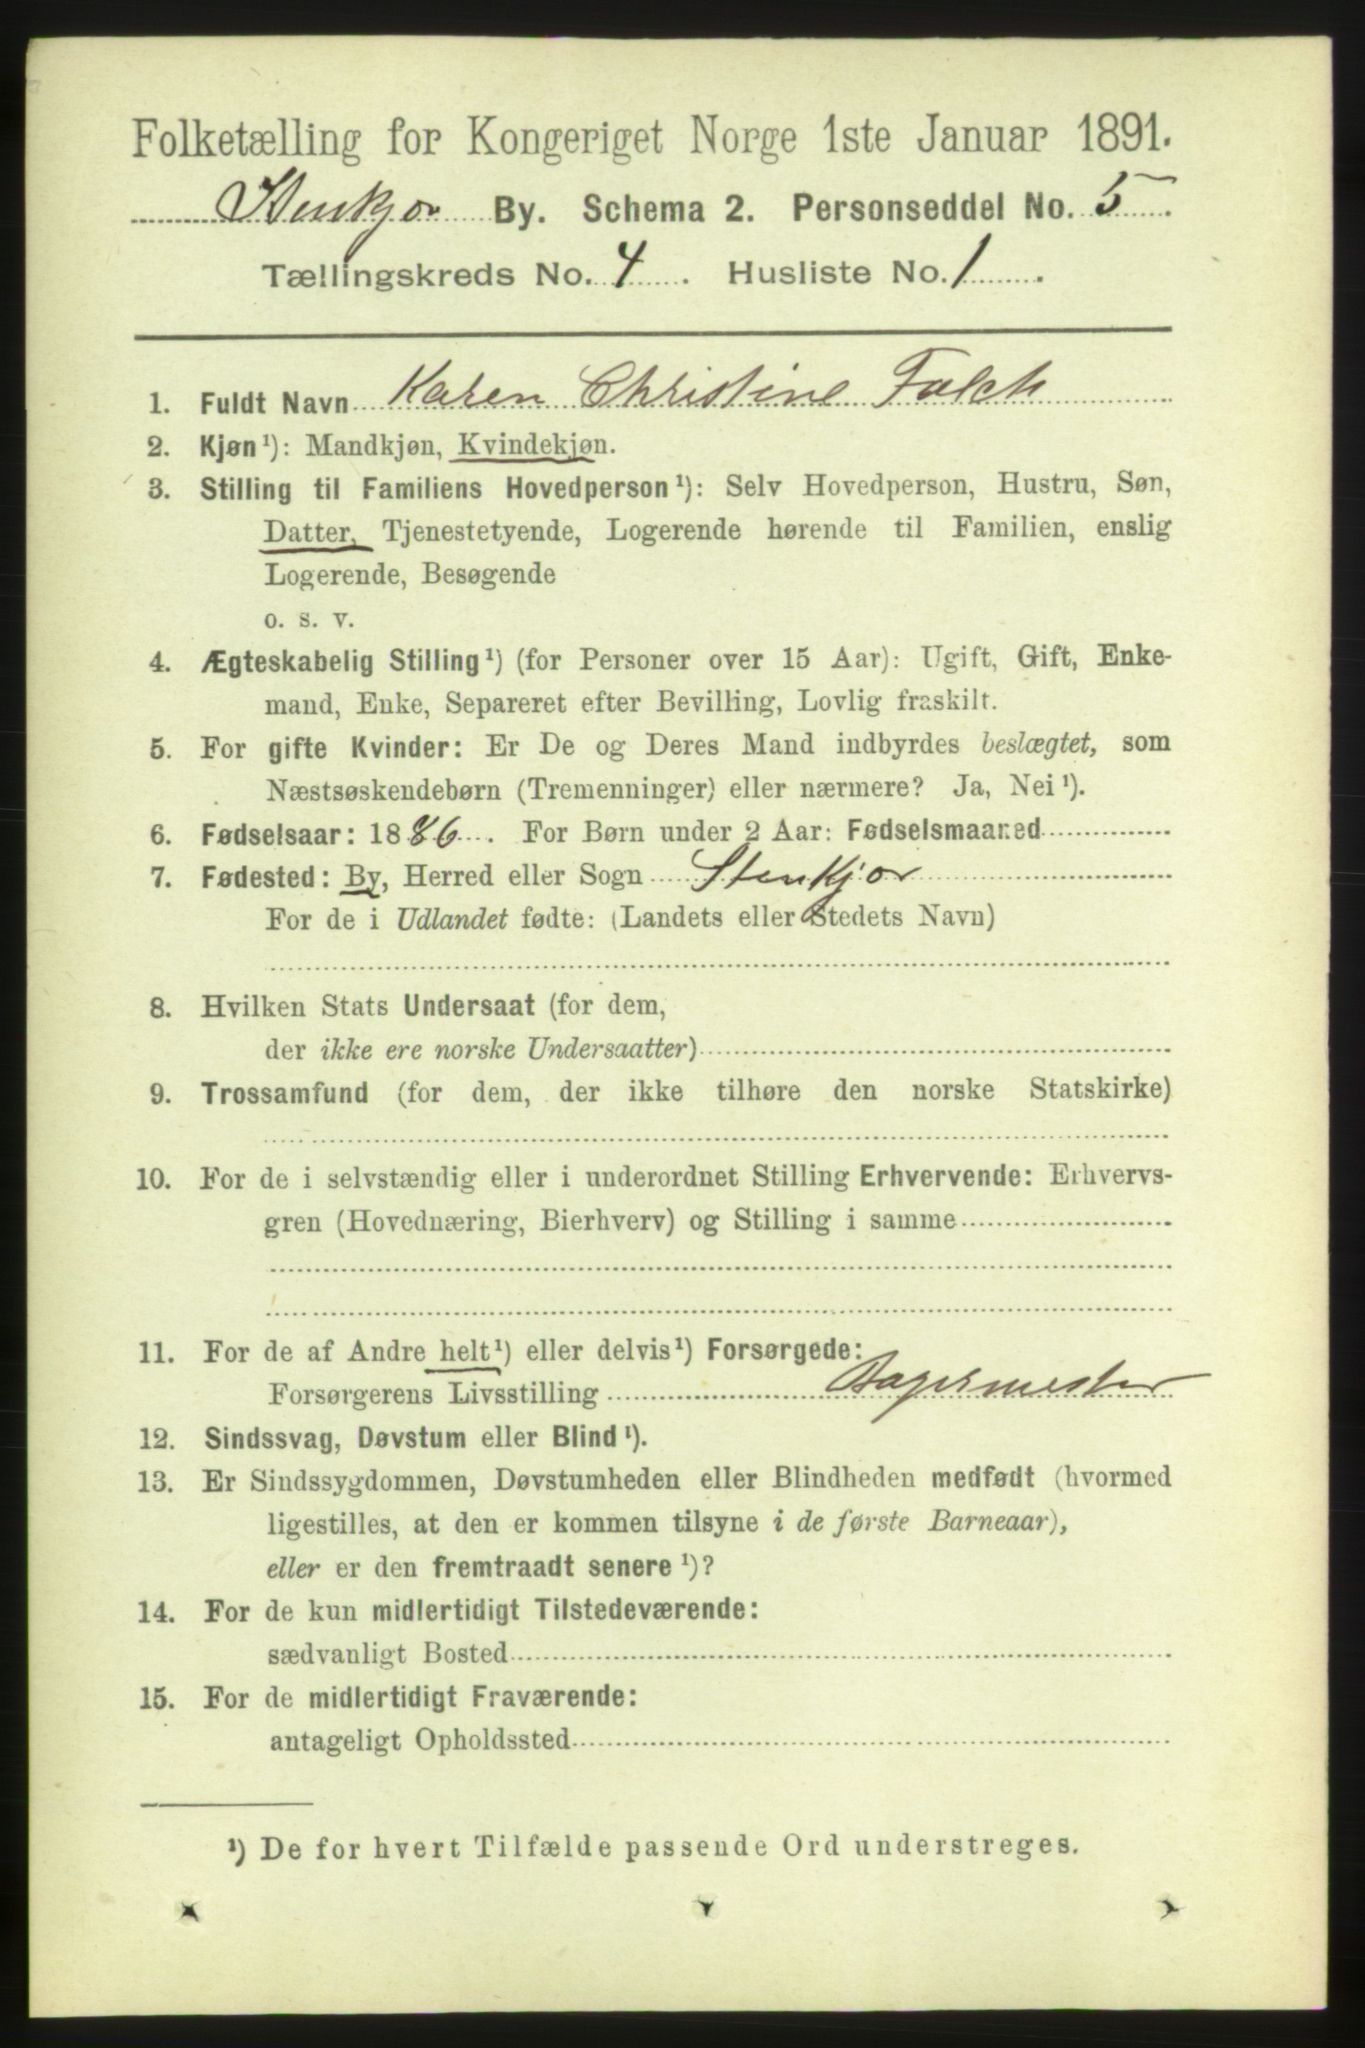 Folketælling for Kongeriget Norge 1ste Januar 1891.
Stenkjær By. Schema 2. Personseddel No. 5.
Tællingskreds No. 4. Husliste No. 1.
1. Fuldt Navn Karen Christine Falch
2. Kjøn¹): Mandkjøn, Kvindekjøn.
3. Stilling til Familiens Hovedperson¹): Selv Hovedperson, Hustru, Søn,
Datter, Tjenestetyende, Logerende hørende til Familien, enslig
Logerende, Besøgende
o. s. v.
4. Ægteskabelig Stilling¹) (for Personer over 15 Aar): Ugift, Gift, Enke-
mand, Enke, Separeret efter Bevilling, Lovlig fraskilt.
5. For gifte Kvinder: Er De og Deres Mand indbyrdes beslægtet, som
Næstsøskendebørn (Tremenninger) eller nærmere? Ja, Nei¹).
6. Fødselsaar: 1886. For Børn under 2 Aar: Fødselsmaaned
7. Fødested: By, Herred eller Sogn Stenkjær
For de i Udlandet fødte: (Landets eller Stedets Navn)
8. Hvilken Stats Undersaat (for dem,
der ikke ere norske Undersaatter)
9. Trossamfund (for dem, der ikke tilhøre den norske Statskirke)
10. For de i selvstændig eller i underordnet Stilling Erhvervende: Erhvervs-
gren (Hovednæring, Bierhverv) og Stilling i samme
11. For de af Andre helt¹) eller delvis¹) Forsørgede:
Forsørgerens Livsstilling Bagermester
12. Sindssvag, Døvstum eller Blind¹).
13. Er Sindssygdommen, Døvstumheden eller Blindheden medfødt (hvormed
ligestilles, at den er kommen tilsyne i de første Barneaar),
eller er den fremtraadt senere¹)?
14. For de kun midlertidigt Tilstedeværende:
sædvanligt Bosted
15. For de midlertidigt Fraværende:
antageligt Opholdssted
¹) De for hvert Tilfælde passende Ord understreges.